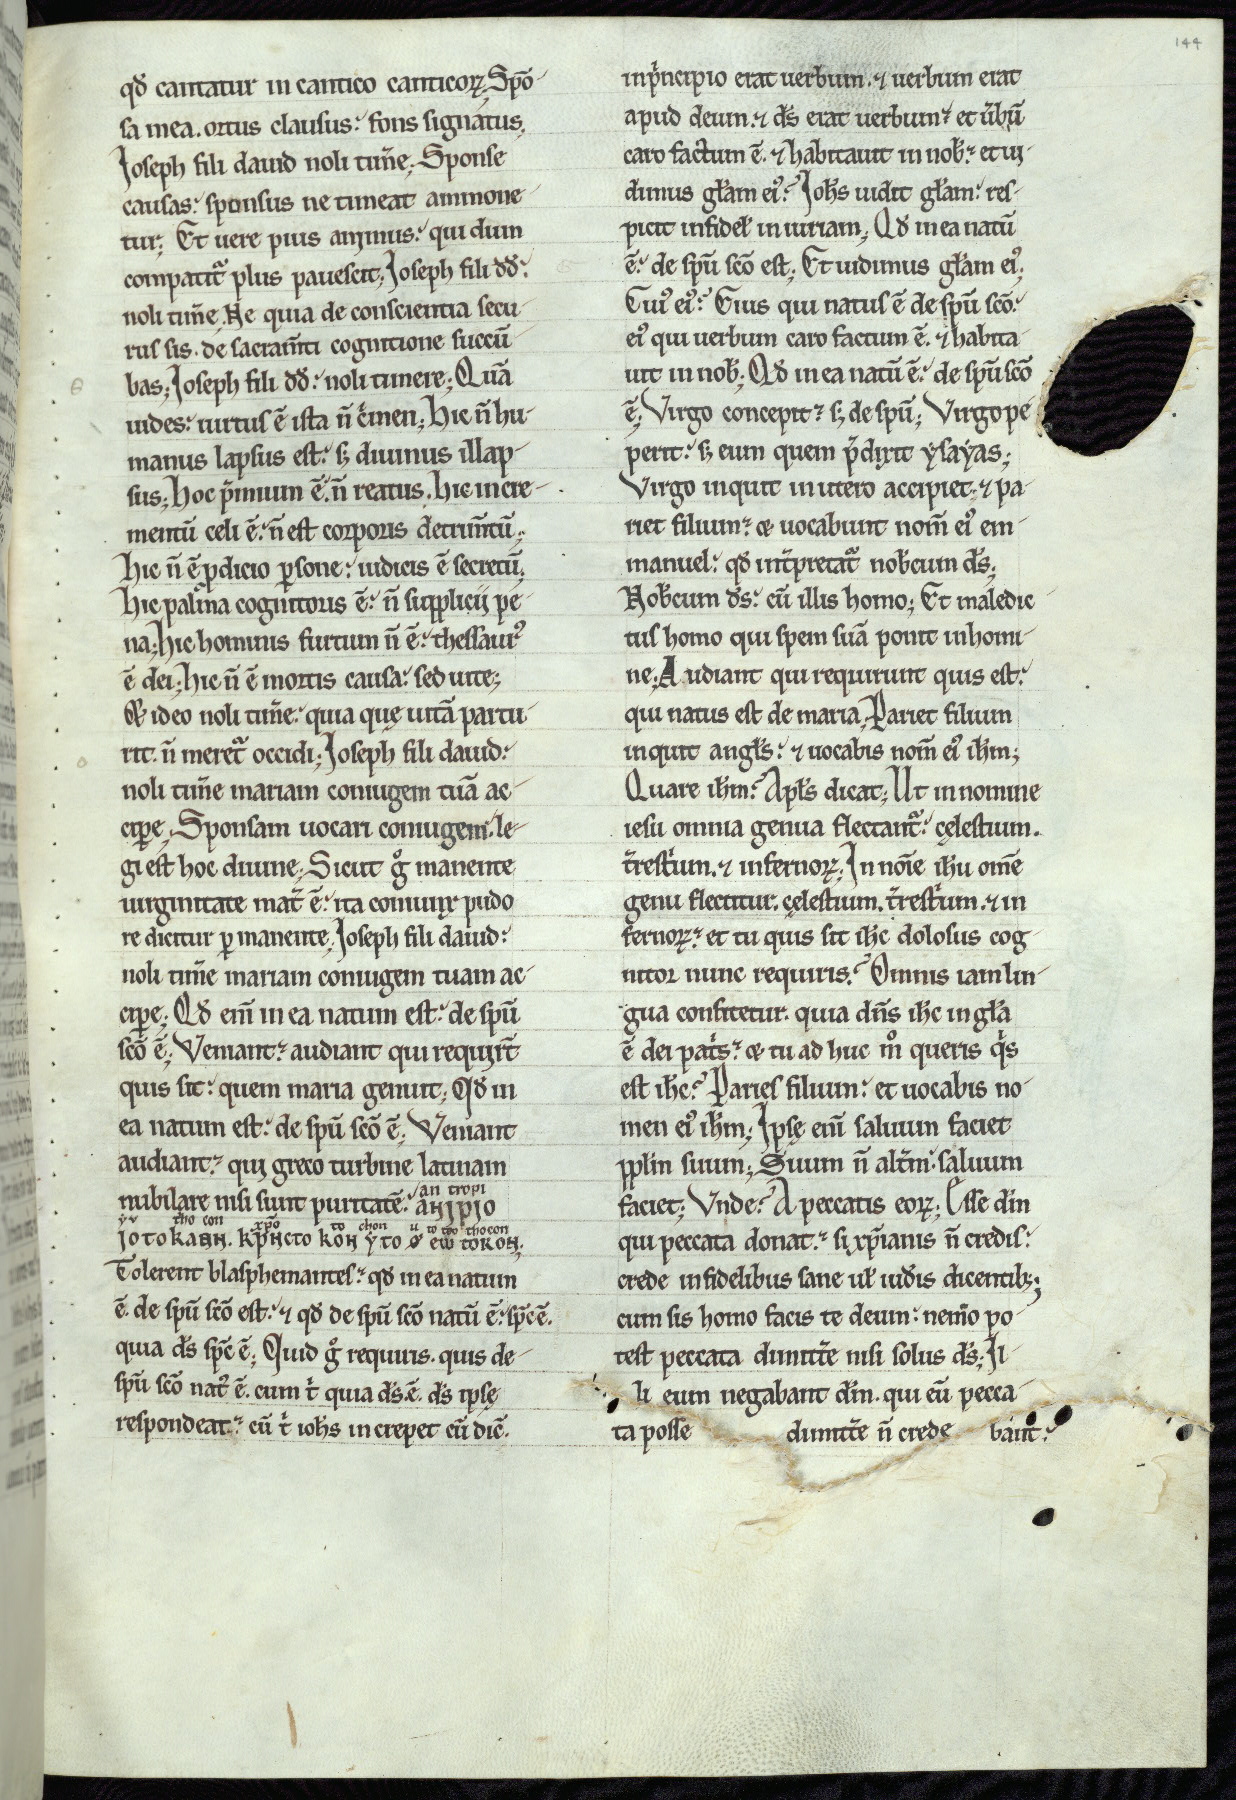 144
qđ cantatur in cantico canticoꝝ; Spō
sa mea. ortus clausus: fons signatus;
Joseph fili dauid noli tim̄e; Sponse
causas: sponsus ne timeat ammone
tur; Et uere pius animus: qui dum
compatit̄ plus pauescit; Joseph fili dđ:
noli tim̄e; Ne quia de conscientia secu
rus sis. de sacram̄ti cognitione succū
bas; Joseph fili dđ: noli timere; Quā
uides: uirtus ē ista n̄ c̄men; Hic n̄ hu
manus lapsus est: s; diuinus illap
sus; Hoc p̄mium ē. n̄ reatus. hic incre
mentū celi ē: n̄ est corporis detrim̄tū;
Hic n̄ ē ꝑdicio ꝑsone: iudicis ē secretū;
Hic cognitoris ē: n̄ supplicij pe
na; hic hominis furtum n̄ ē: thessaur᾽
ē dei; hic n̄ ē mortis causa: sed uite;
Et ideo noli tim̄e: quia quę uitā partu
rit. n̄ meret̄ occidi; Joseph fili dauid:
noli tim̄e mariam coniugem tuā ac
ciꝑe; Sponsam uocari coniugem: le
gi est hoc diuine; Sicut gͦ manente
uirginitate mat̄ ē: ita coniunx pudo
re dicitur ꝑmanente; Joseph fili dauid:
noli tim̄e mariam coniugem tuam ac
ciꝑe; Qđ eni̅ in ea natum est: de spū
scō ē; Veniant: audiant qui requir̄t
quis sit: quem maria genuit; Qđ in
ea natum est: de spū scō ē; Veniant
audiant: qui greco turbine latinam
nubilare nisi sunt puritatē:
Tolerent blasphemantes: qđ in ea natum
ē. de spū scō est: ⁊ qđ de spū scō natū ē: spc̄ ē.
quia ds̄ spc̄ ē; Quid gͦ requiris. quis de
spū scō nat᾽ ē. cum t̄ quia ds̄ ē. ds̄ ipsę
respondeat: cū t̄ ioħs increpet cū dic̄.
inp̄ncipio erat uerbum. ⁊ uerbum erat
apud deum: ⁊ ds̄ erat uerbum: et ūbū
caro factum ē. ⁊ habitauit in nob̄: et ui
dimus gła̅m ei᾽: Joħs uidit gła̅m: res
picit infidel̄ iniuriam; Qđ in ea natū
ē: de spū scō est; Et uidimus gła̅m ei᾽;
Cui᾽ ei᾽? Eius qui natus ē de spū scō:
ei᾽ qui uerbum caro factum ē. ⁊ habita
uit in nob̄; Qđ in ea natū ē: de spū scō
ē; Virgo concepit: s; de spū; Virgo pe
perit: s; eum quem p̄dixit ysayas;
Virgo inquit in utero accipiet: ⁊ pa
riet filium: & uocabunt nom̄ ei᾽ em
manuel: qđ int̄pretat̄ nob̄cum ds̄;
Nob̄cum ds̄: cū illis homo; Et maledic
tus homo qui spem suā ponit in homi
ne; Audiant qui requirunt quis est:
qui natus est de maria; Pariet filium
inquit angłs: ⁊ uocabis nom̄ ei᾽ iħm;
Quare iħm? Apłs dicat; Ut in nomine
iesu omnia genua flectant̄: cęlestium.
t̄rest̄ium. ⁊ infernoꝝ; In noīe iħu om̄e
genu flectitur. cęlestium. t̄rest̄ium. ⁊ in
fernoꝝ: et tu quis sit iħc dolosus cog
nitor nunc requiris? Omnis iam lin
gua confitetur. quia dn̄s iħc in gła
ē dei pat̄s: & tu ad huc mͦ queris q̄s
est iħc? Paries filium: et uocabis no
men ei᾽ iħm; Ipsę eni̅ saluum faciet
pplm̄ suum; Suum n̄ alt̄m: saluum
faciet; Vnde? A peccatis eoꝝ; Esse dm̄
qui peccata donat: si xp̄ianis n̄ credis:
crede infidelibus sane uł iudīs dicentib;;
cum sis homo facis te deum: nemo po
test peccata dimitt̄e nisi solus ds̄; Il
li eum negabant dm̄. qui eū pecca
ta posse dimitt̄e n̄ crede bant: